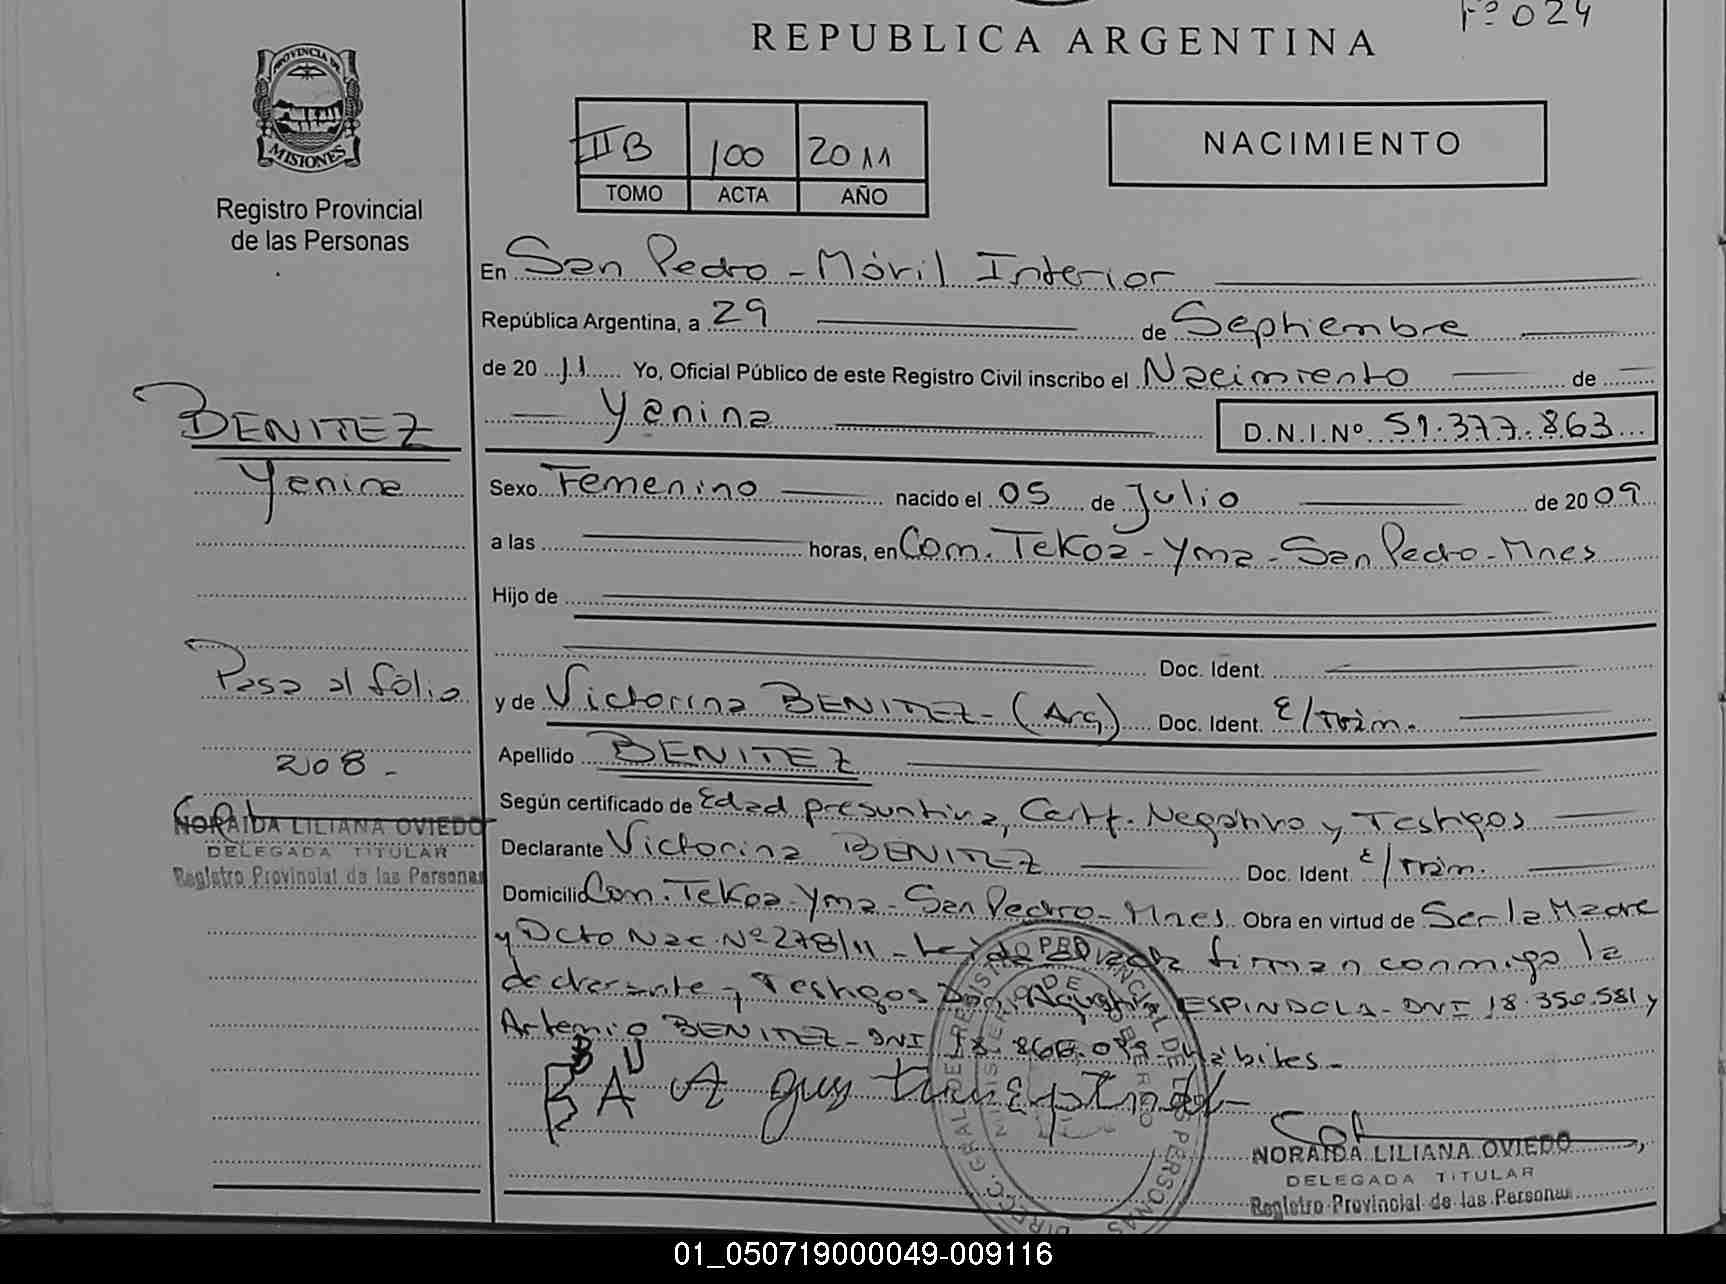 Fº 024
REPUBLICA ARGENTINA
PROVINCIA DE
MISIONES
Registro Provincial
de las Personas
IIB 100 2011
TOMO ACTA AÑO
NACIMIENTO
En San Pedro - Móvil Interior
República Argentina, a 29 de Septiembre
de 20 11 Yo, Oficial Público de este Registro Civil inscribo el Nacimiento de
Yanina
D.N.I.Nº 51.377.863
BENITEZ
Yanina
Sexo Femenino nacido el 05 de Julio de 20 09
a las horas, en Com. Tekoa - Yma - San Pedro - Mnes
Hijo de
Doc. Ident.
y de Victorina BENITEZ - (Arg) Doc. Ident. E/Trám.
Apellido BENITEZ
Según certificado de Edad presuntiva, Certf. Negativo y Testigos
Declarante Victorina BENITEZ Doc. Ident. E/Trám.
Domicilio Com. Tekoa - Yma - San Pedro - Mnes Obra en virtud de Ser la Madre
y Dcto Nac. Nº 278/11 - Leída el acta firman conmigo la
declarante y Testigos Don Agustin ESPINDOLA - DNI 18.350.581 y
Artemio BENITEZ - DNI hábiles -
B U
B A Agustin
Pasa al fólio
208 -
NORAIDA LILIANA OVIEDO
DELEGADA TITULAR
Registro Provincial de las Personas
NORAIDA LILIANA OVIEDO
DELEGADA TITULAR
Registro Provincial de las Personas
01_050719000049-009116